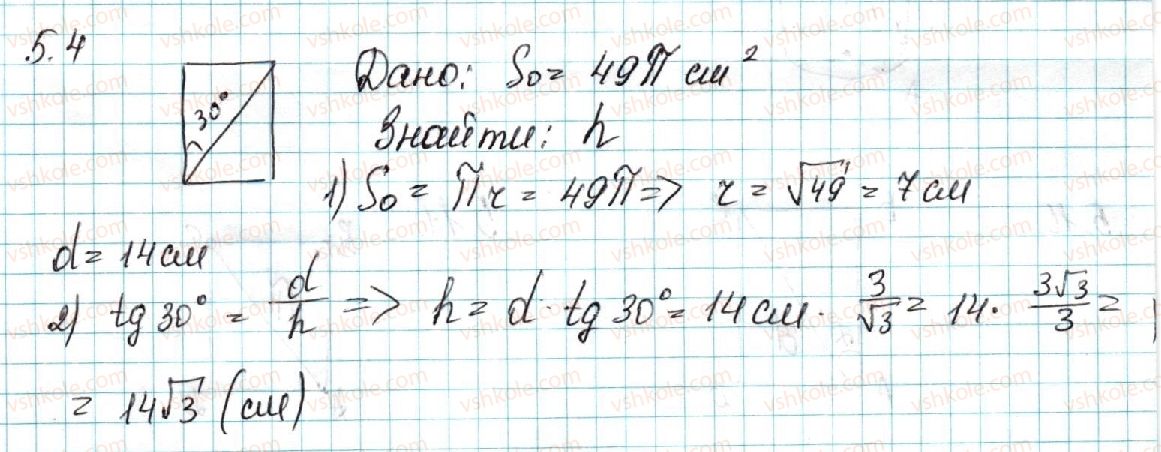 5.4
30°
Дано: So = 49π см²
Знайти: h
1) So = πr = 49π => r = √49 = 7 см
d = 14 см
2) tg 30° = d/h => h = d · tg 30° = 14 см · 3/√3 = 14 · 3√3/3 =
= 14√3 (см)